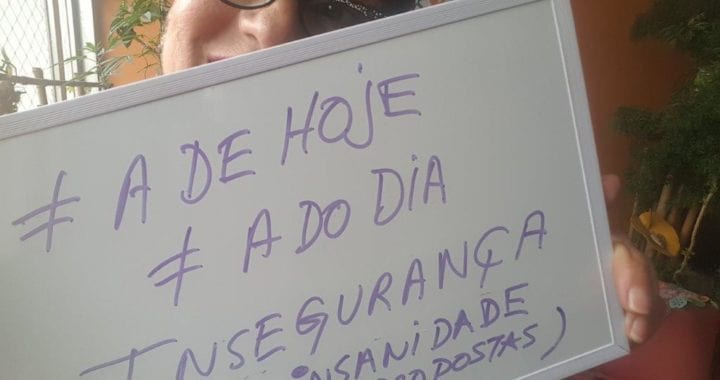 # A DE HOJE
# A DO DIA
INSEGURANÇA
INSANIDADE